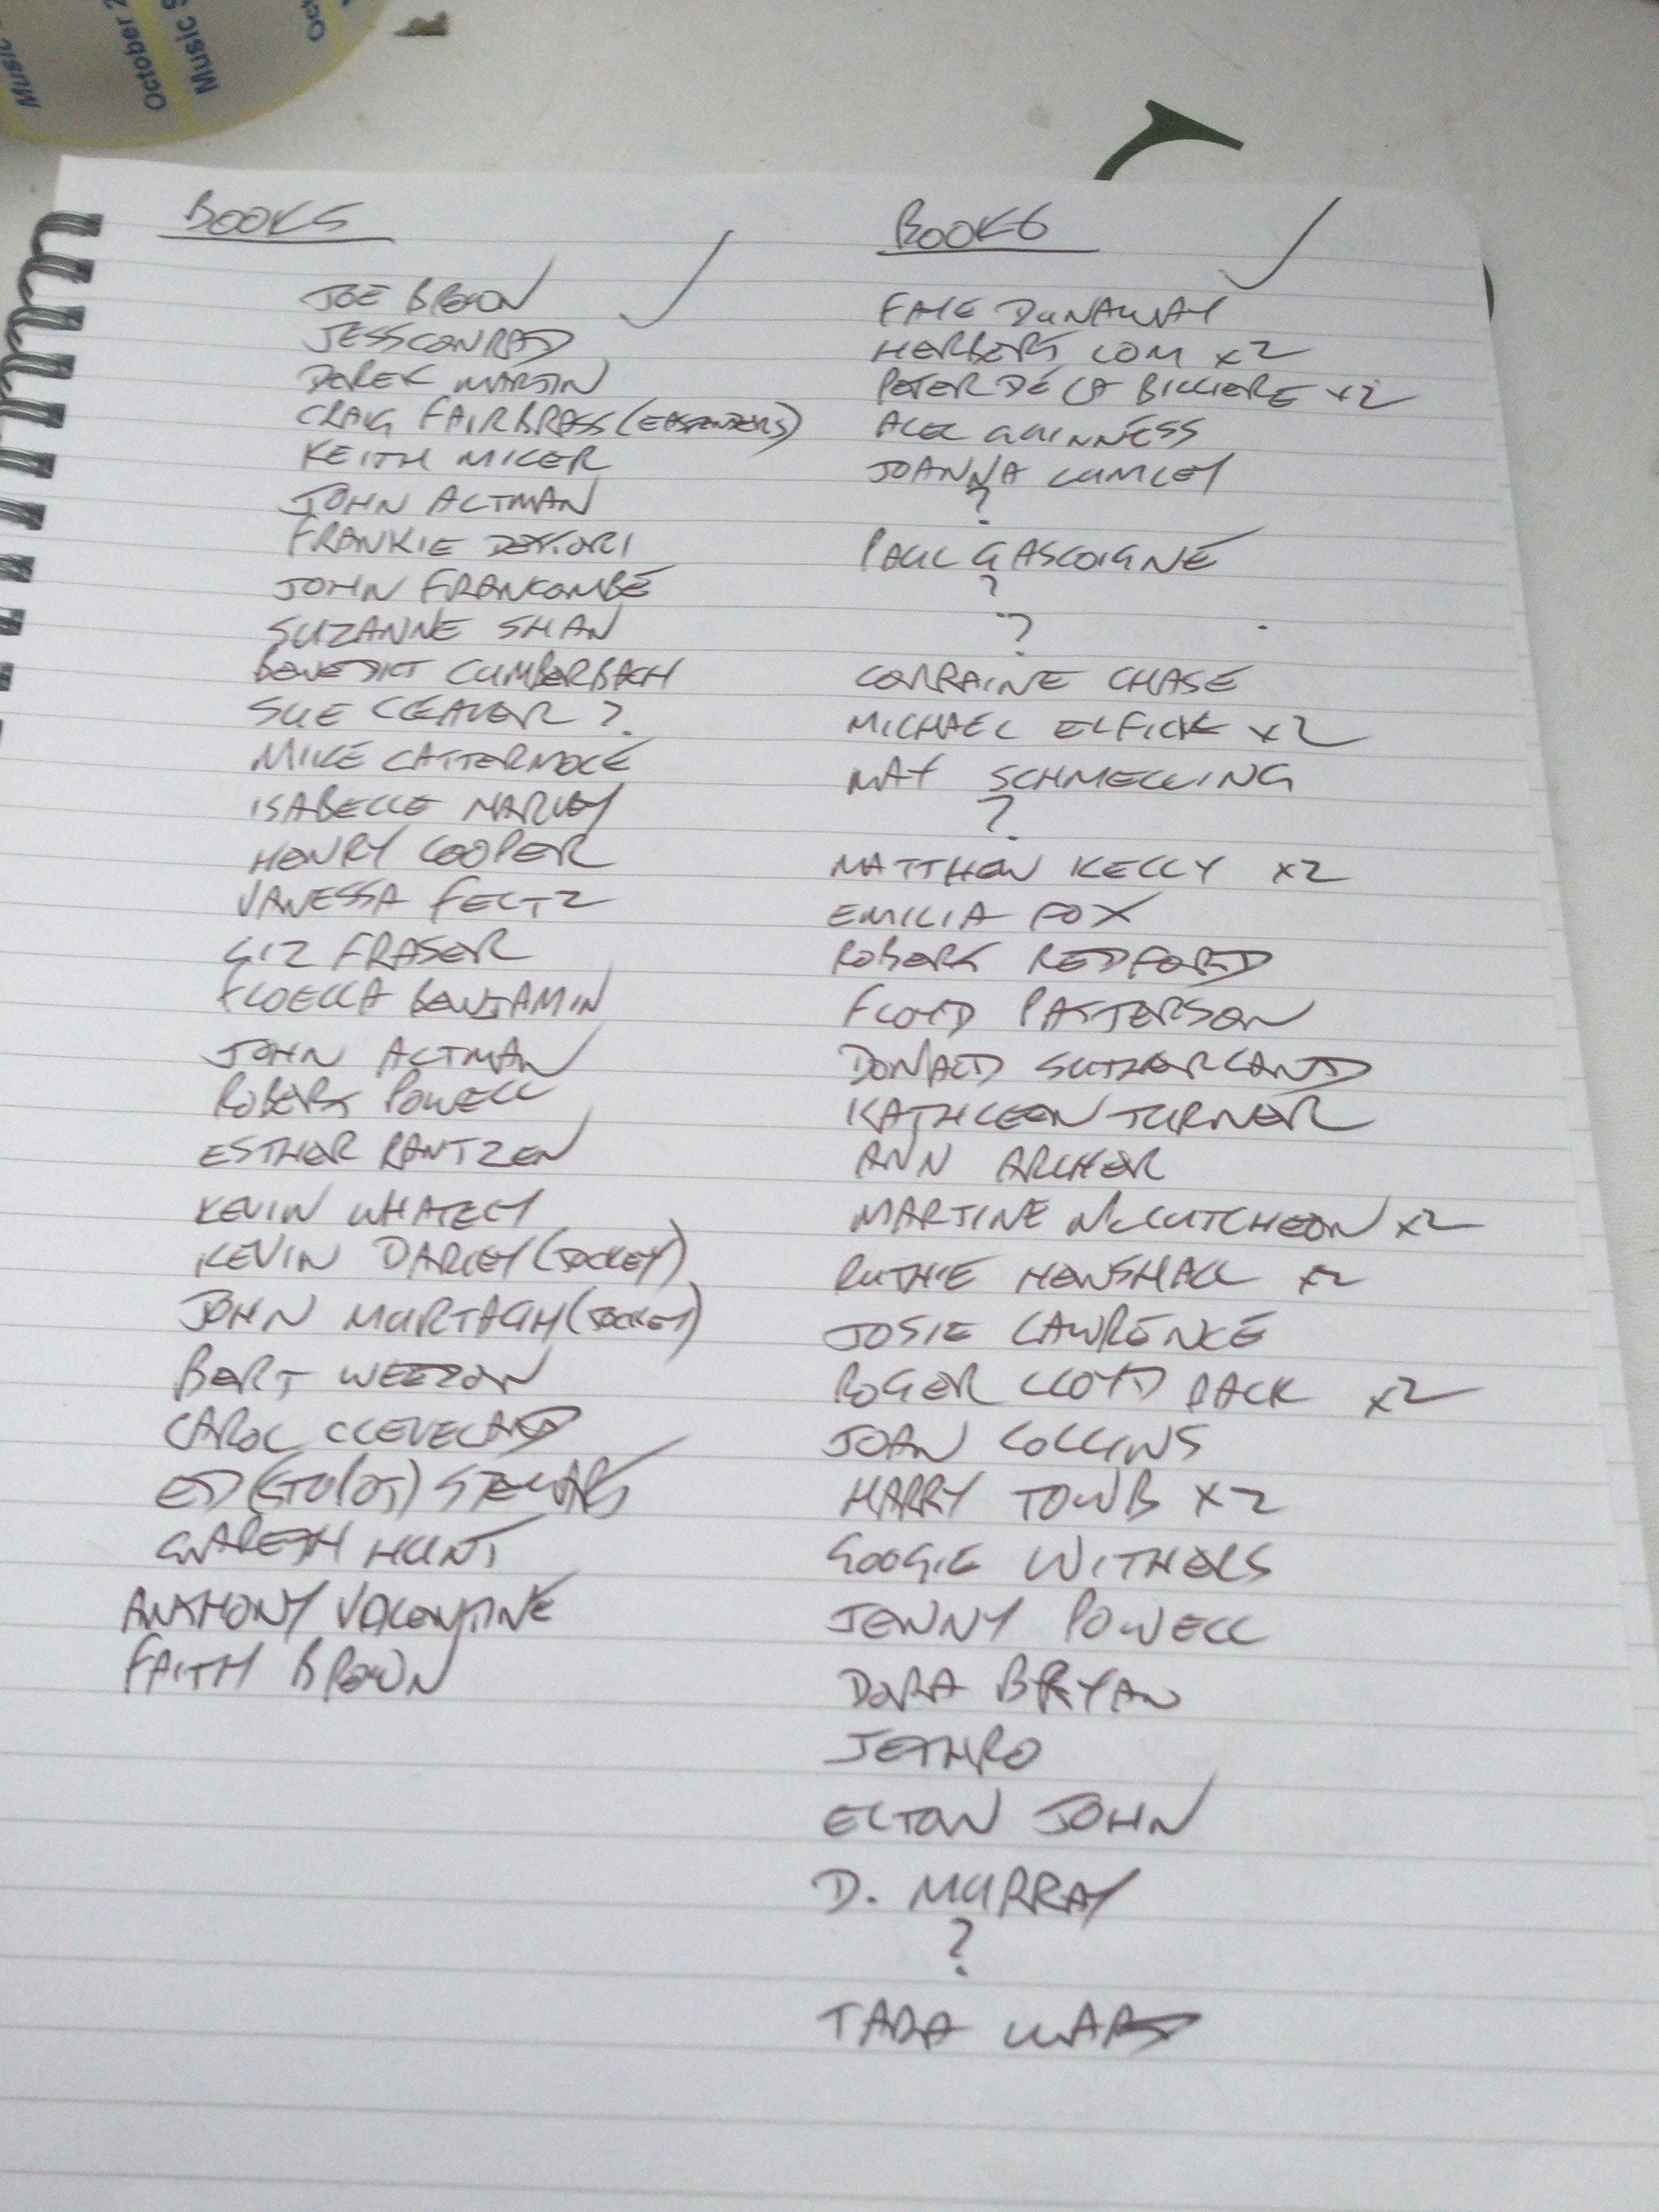 Music
October 2
Music S
Oct
BOOK 5
JOE BROWN
JESS CONRAD
DEREK MARTIN
CRAIG FAIRBRASS (EASTENDERS)
KEITH MILLER
JOHN ALTMAN
FRANKIE DETTORI
JOHN FRANCOMBE
SUZANNE SHAW
BENEDICT CUMBERBACH
SUE CLEAVER ?
MIKE CATTERMOLE
ISABELLE
HENRY COOPER
VANESSA FELTZ
LIZ FRASER
FLOELLA BENJAMIN
JOHN ALTMAN
ROBERT POWELL
ESTHER RANTZEN
KEVIN WHATELY
KEVIN DARLEY (JOCKEY)
JOHN MURTAGH (JOCKEY)
BERT WEEDON
CAROL CLEVELAND
ED (STUPOT) STEWART
GARETH HUNT
ANTHONY VALENTINE
FAITH BROWN
BOOK 6
FAYE DUNAWAY
HERBERT LOM x2
PETER DE LA BILLIERE x2
ALEC GUINNESS
JOANNA LUMLEY
?
PAUL GASCOIGNE
?
?
LORRAINE CHASE
MICHAEL ELFICK x2
MAX SCHMELLING
?
MATTHEW KELLY x2
EMILIA FOX
ROBERT REDFORD
FLOYD PATTERSON
DONALD SUTHERLAND
KATHLEEN TURNER
ANN ARCHER
MARTINE McCUTCHEON x2
RUTHIE HENSHALL x2
JOSIE LAWRENCE
ROGER LLOYD PACK x2
JOAN COLLINS
HARRY TOWB x2
GOOGIE WITHERS
JENNY POWELL
DORA BRYAN
JETHRO
ELTON JOHN
D. MURRAY
?
TARA WARD